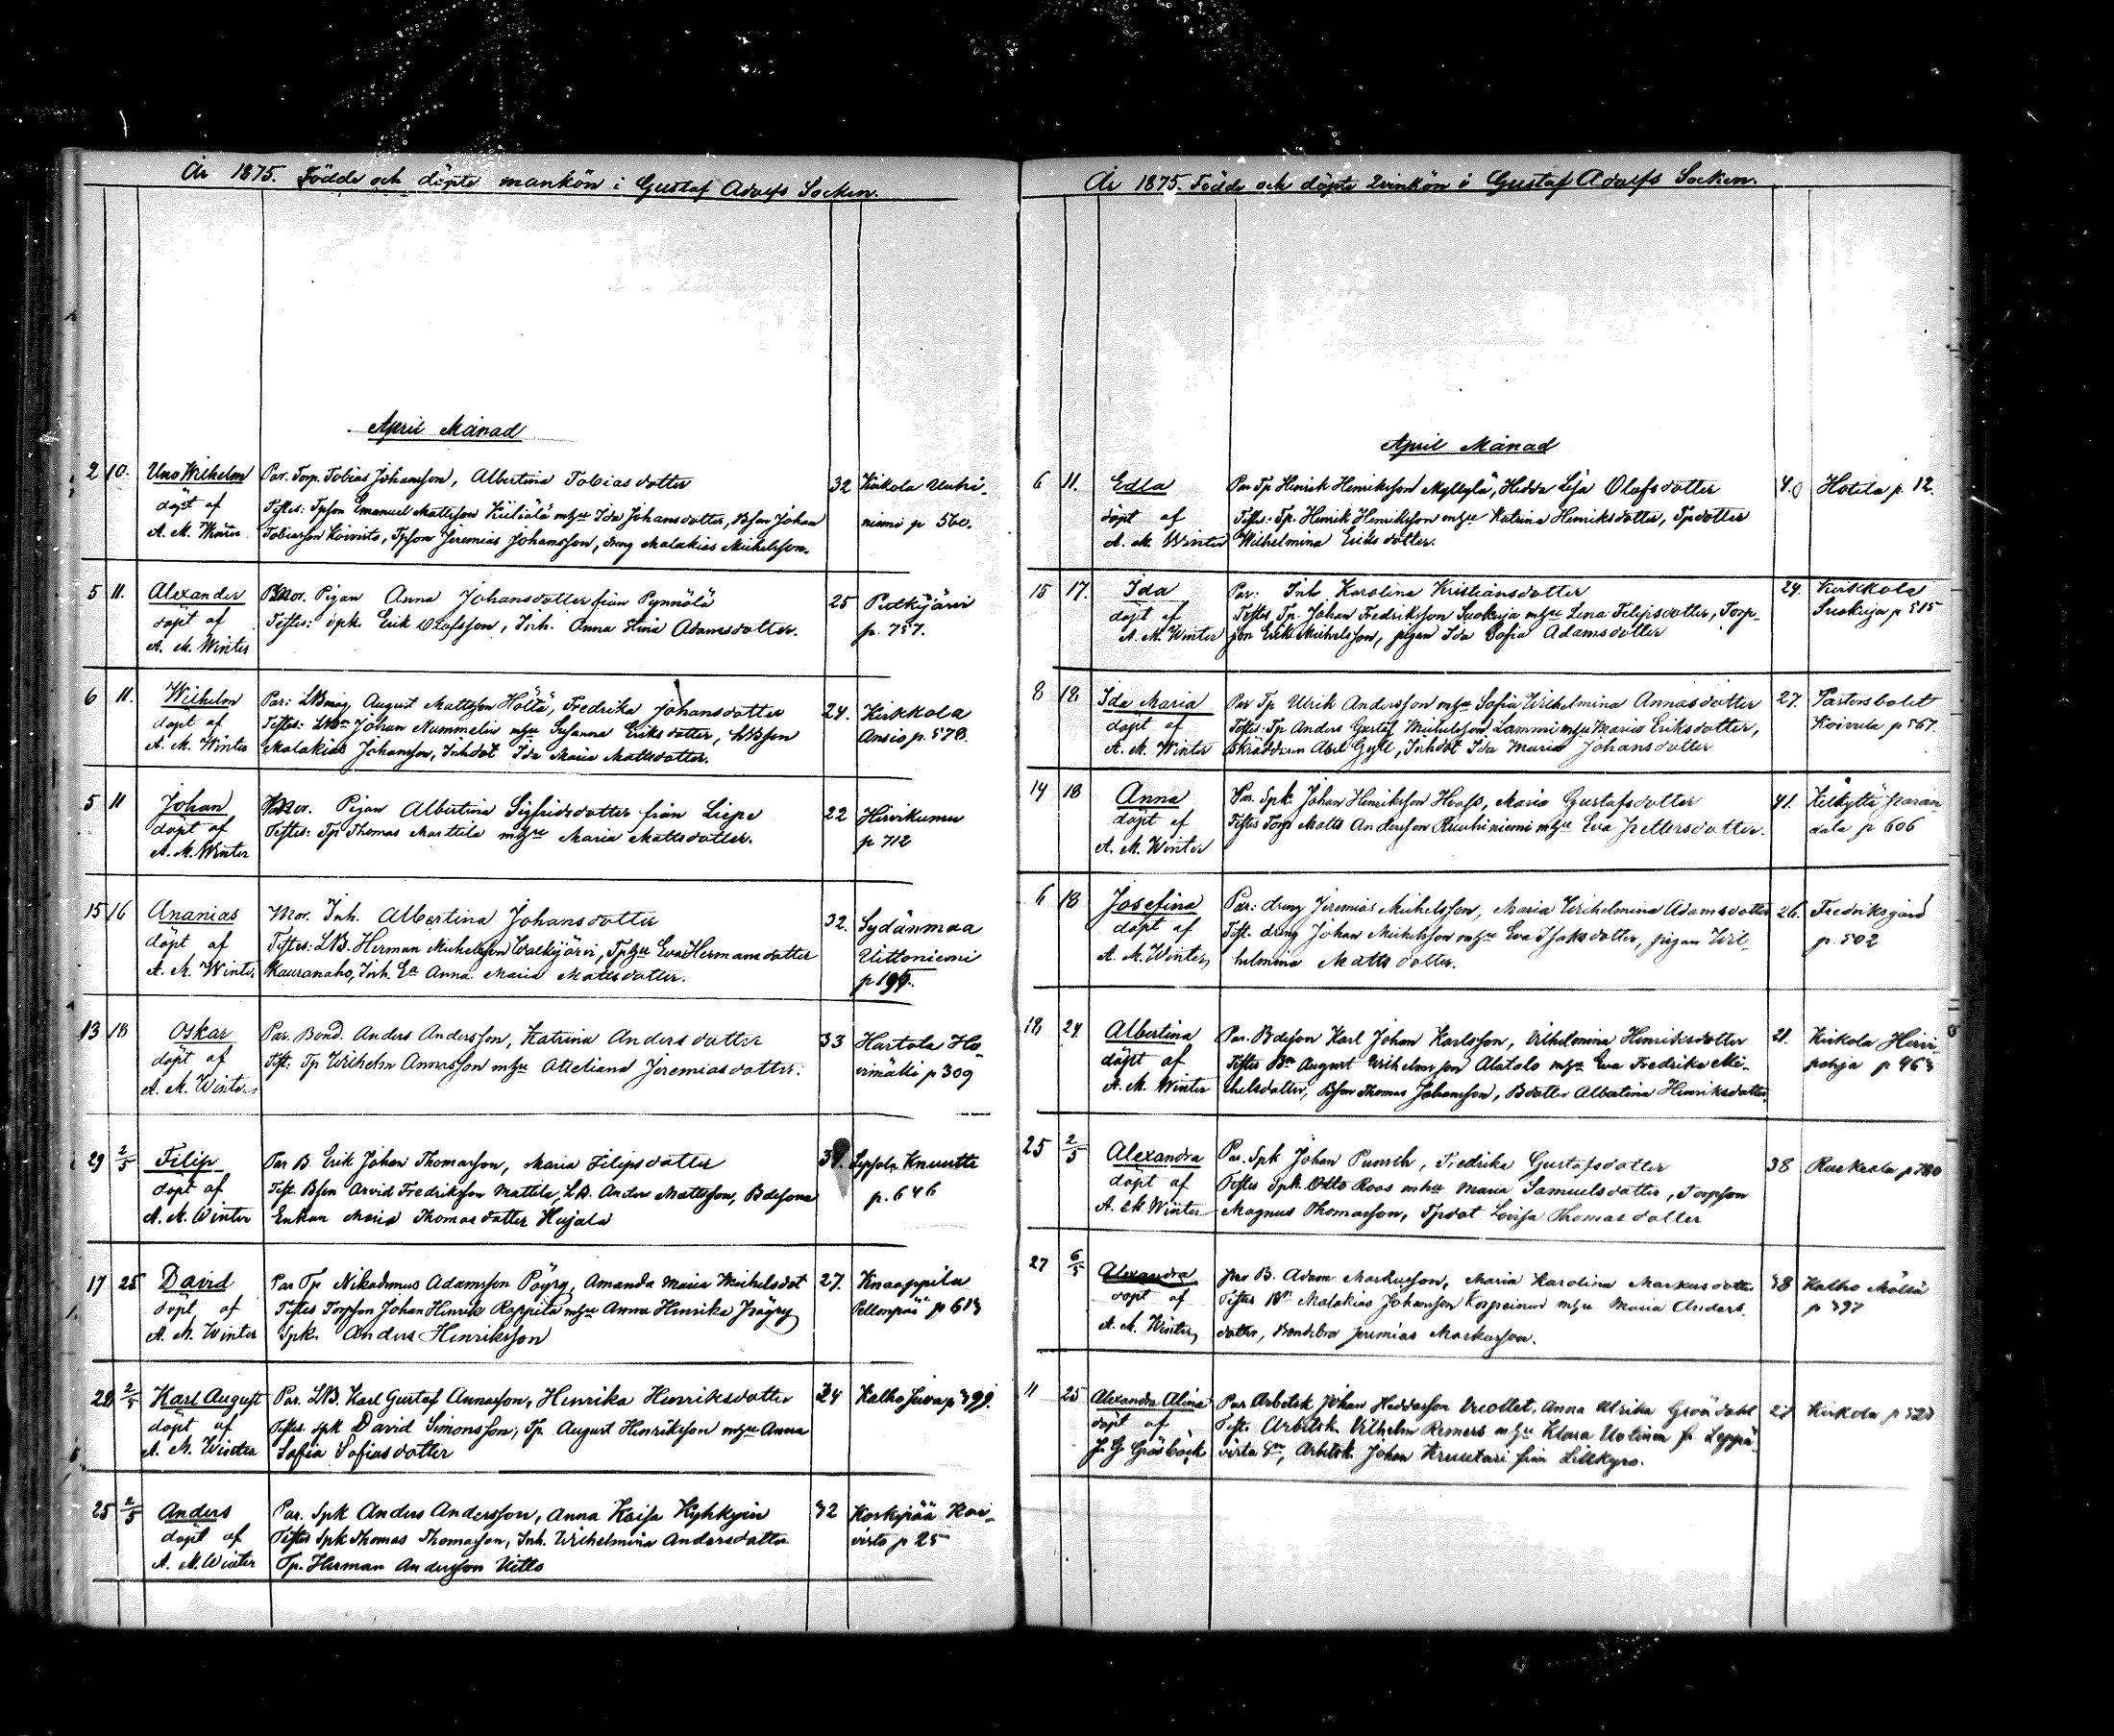 År 1875. Födde och döpte mankön i Gustaf Adolfs Socken.
April Månad
2 10. Uno Wilhelm Par. Torp. Tobias Johansson, Albertina Tobiasdotter 32 Kirkola Uuhi-
döpt af Testes: Tpson Emanuel Mattsson Kiiliälä m hu Ida Johansdotter, Bson Johan niemi p 560.
A. M. Winter Tobiasson Koivisto, Tpson Jeremias Johansson, dreng Malakias Michelsson.
5 11. Alexander Mor. Pigan Anna Johansdotter från Pynnölä 25 Putkijärvi
döpt af Testes: spk. Erik Olofsson, Inh. Anna Stina Adamsdotter. p. 757.
A. M. Winter
6 11. Wilhelm Par: LBmåg August Mattsson Höltä, Fredrika Johansdotter 24. Kirkkola
döpt af Testes: Johan Nummelin m hu Susanna Eriksdotter, LBson Ansio p. 578.
A. M. Winter Malakias Johansson, Inhdot Ida Maria Mattsdotter.
5 11 Johan Mor. Pigan Albertina Sigfridsdotter från Liepe 22 Hirvikumu
döpt af Testes: Tp Thomas Marttila m hu Maria Mattsdotter. p 712
A. M. Winter
15 16 Ananias Mor. Inh. Albertina Johansdotter 32. Sydänmaa
döpt af Testes: LB. Herman Michelsson Walkijärvi, Tp hu Eva Hermansdotter Uittoniemi
A. M. Winter Kauranaho, Inh. Ea Anna Maria Mattsdotter. p
13 18 Oskar Par. Bond. Anders Andersson, Katrina Andersdotter 33 Hartola Ho-
döpt af Test: Tp Wilhelm Annasson m hu Atteliana Jeremiasdotter. vimäki p 309
A. M. Winter
29 2/5 Filip Par B. Erik Johan Thomasson, Maria Filipsdotter Knuutti
döpt af Test. Bson Arvid Fredriksson Mattila, LB. Anders Mattsson, Bdesona p. 646
A. M. Winter Enkan Maria Thomasdotter Hujala
17 25 David Par Tp Nikodemus Adamsson Pöyry, Amanda Maria Michelsdot 27. Knaappila
döpt af Testes Torpson Johan Henrik Rappila m hu Anna Henrika Pöyry Pellonpää p 613
A. M. Winter Spk. Anders Henriksson
28 2/5 Karl August Par. LB. Karl Gustaf Annasson, Henrika Henriksdotter 24 Kalho Juva p 399.
döpt af Testes. spk David Simonsson, Tp. August Henriksson m hu Anna
A. M. Winter Sofia Sofiasdotter
25 2/5 Anders Par. Spk Anders Andersson, Anna Kaisa Kyhkyin 32 Koskipää Koi-
döpt af Testes Spk Thomas Thomasson, Inh. Wilhelmina Andersdotter visto p 25
A. M. Winter Tp. Herman Andersson Uitto
År 1875. Födde och döpte qvinkön i Gustaf Adolfs Socken.
April Månad
6 11. Edla Par Tp Henrik Henriksson Myllylä, Hedda Lisa Olofsdotter 40 Hotila p. 12.
döpt af Testes: Tp. Henrik Henriksson m hu Katrina Henriksdotter, Tpdotter
A. M. Winter Wilhelmina Eriksdotter.
15 17. Ida Par: Inh Karolina Kristiansdotter 24. Kirkkola
döpt af Testes Tp. Johan Fredriksson Suokuja m hu Lena Filipsdotter, Torp- Suokuja p 515
A. M. Winter son Erik Michelsson, pigan Ida Sofia Adamsdotter
8 18 Ida Maria Par Tp Ulrik Andersson m hu Sofia Wilhelmina Annasdotter 27. Pastorsbolet
döpt af Testes: Tp Anders Gustaf Michelsson Lammi m hu Maria Eriksdotter, Koivula p 567.
A. M. Winter Skräddaren Abel Gyll, Inhdot Ida Maria Johansdotter
14 18 Anna Par. Spk. Johan Henriksson Hvass, Maria Gustafsdotter 41.
döpt af Testes Torp Matts Andersson Ruuhiniemi m hu Eva Pettersdotter. dala p 606
A. M. Winter
6 18 Josefina Par: dreng Jeremias Michelsson, Maria Wilhelmina Adamsdotter 26. Fredriksgård
döpt af Test. dreng Johan Michelsson m hu Eva Isaksdotter, pigan Wil- p. 502
A. M. Winter helmina Mattsdotter.
18 24 Albertina Par. Bdeson Karl Johan Karlsson, Wilhelmina Henriksdotter 21. Kirkola Hirvi-
döpt af Testes Bn August Wilhelmsson Alatalo m hu Eva Fredrika Mi- pohja p 463
A. M. Winter chelsdotter, Bson Thomas Johansson, Bdotter Albertina Henriksdotter
25 2/5 Alexandra Par. Spk Johan Punsch, Fredrika Gustafsdotter 38 Ruskeala p
döpt af Testes Spk. Otto Roos m hu Maria Samuelsdotter, Torpson
A. M. Winter Magnus Thomasson, Tpdot Lovisa Thomasdotter
27 6/5 Alexandra Par B. Adam Markusson, Maria Karolina Markusdotter 38 Kalho Mölsä
döpt af Testes Bn Malakias Johansson m hu Maria Anders- p 397
A. M. Winter dotter, Bondebror Jeremias Markusson.
11 25 Alexandra Alina Par Arbetsk Johan Heddasson, Anna Ulrika Gröndahl Kirkola p 520
döpt af Test. Arbetsk. Vilhelm m hu Klara Uotinen fr. Leppä-
J G Gråsbäck virta Sn, Arbetsk. Johan från Lillkyro.